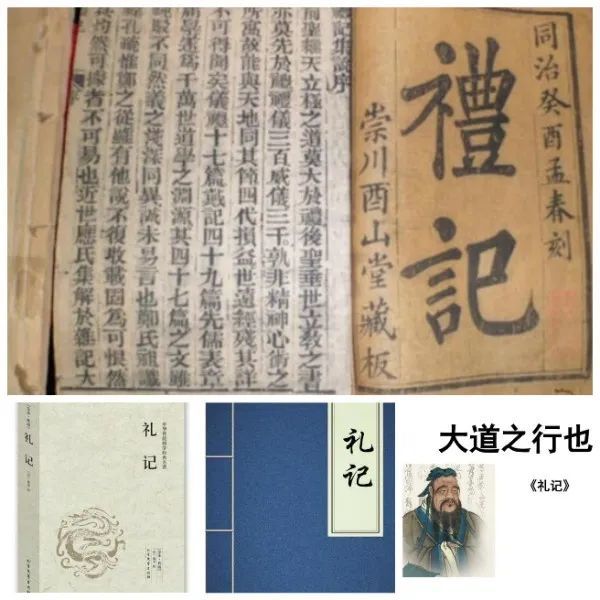 同治癸酉孟春刻
禮記
崇川酉山堂藏板
禮記集說序
前聖繼天立極之道莫大於禮後聖垂世立教之書
亦莫先於禮禮儀三百威儀三千孰非精神心術之
所寓故能與天地同其節四代損益世遠經殘其詳
不可得聞矣儀禮十七篇戴記四十九篇先儒表章
庸學遂爲千萬世道學之淵源其四十七篇之文雖
純駁不同然義之淺深同異誠未易言也鄭氏祖讖
緯孔疏惟鄭之從雖有他說不復收載固爲可恨然
灼然可據者不可易也近世應氏集解於雜記大
礼记
礼记
礼记
大道之行也
《礼记》